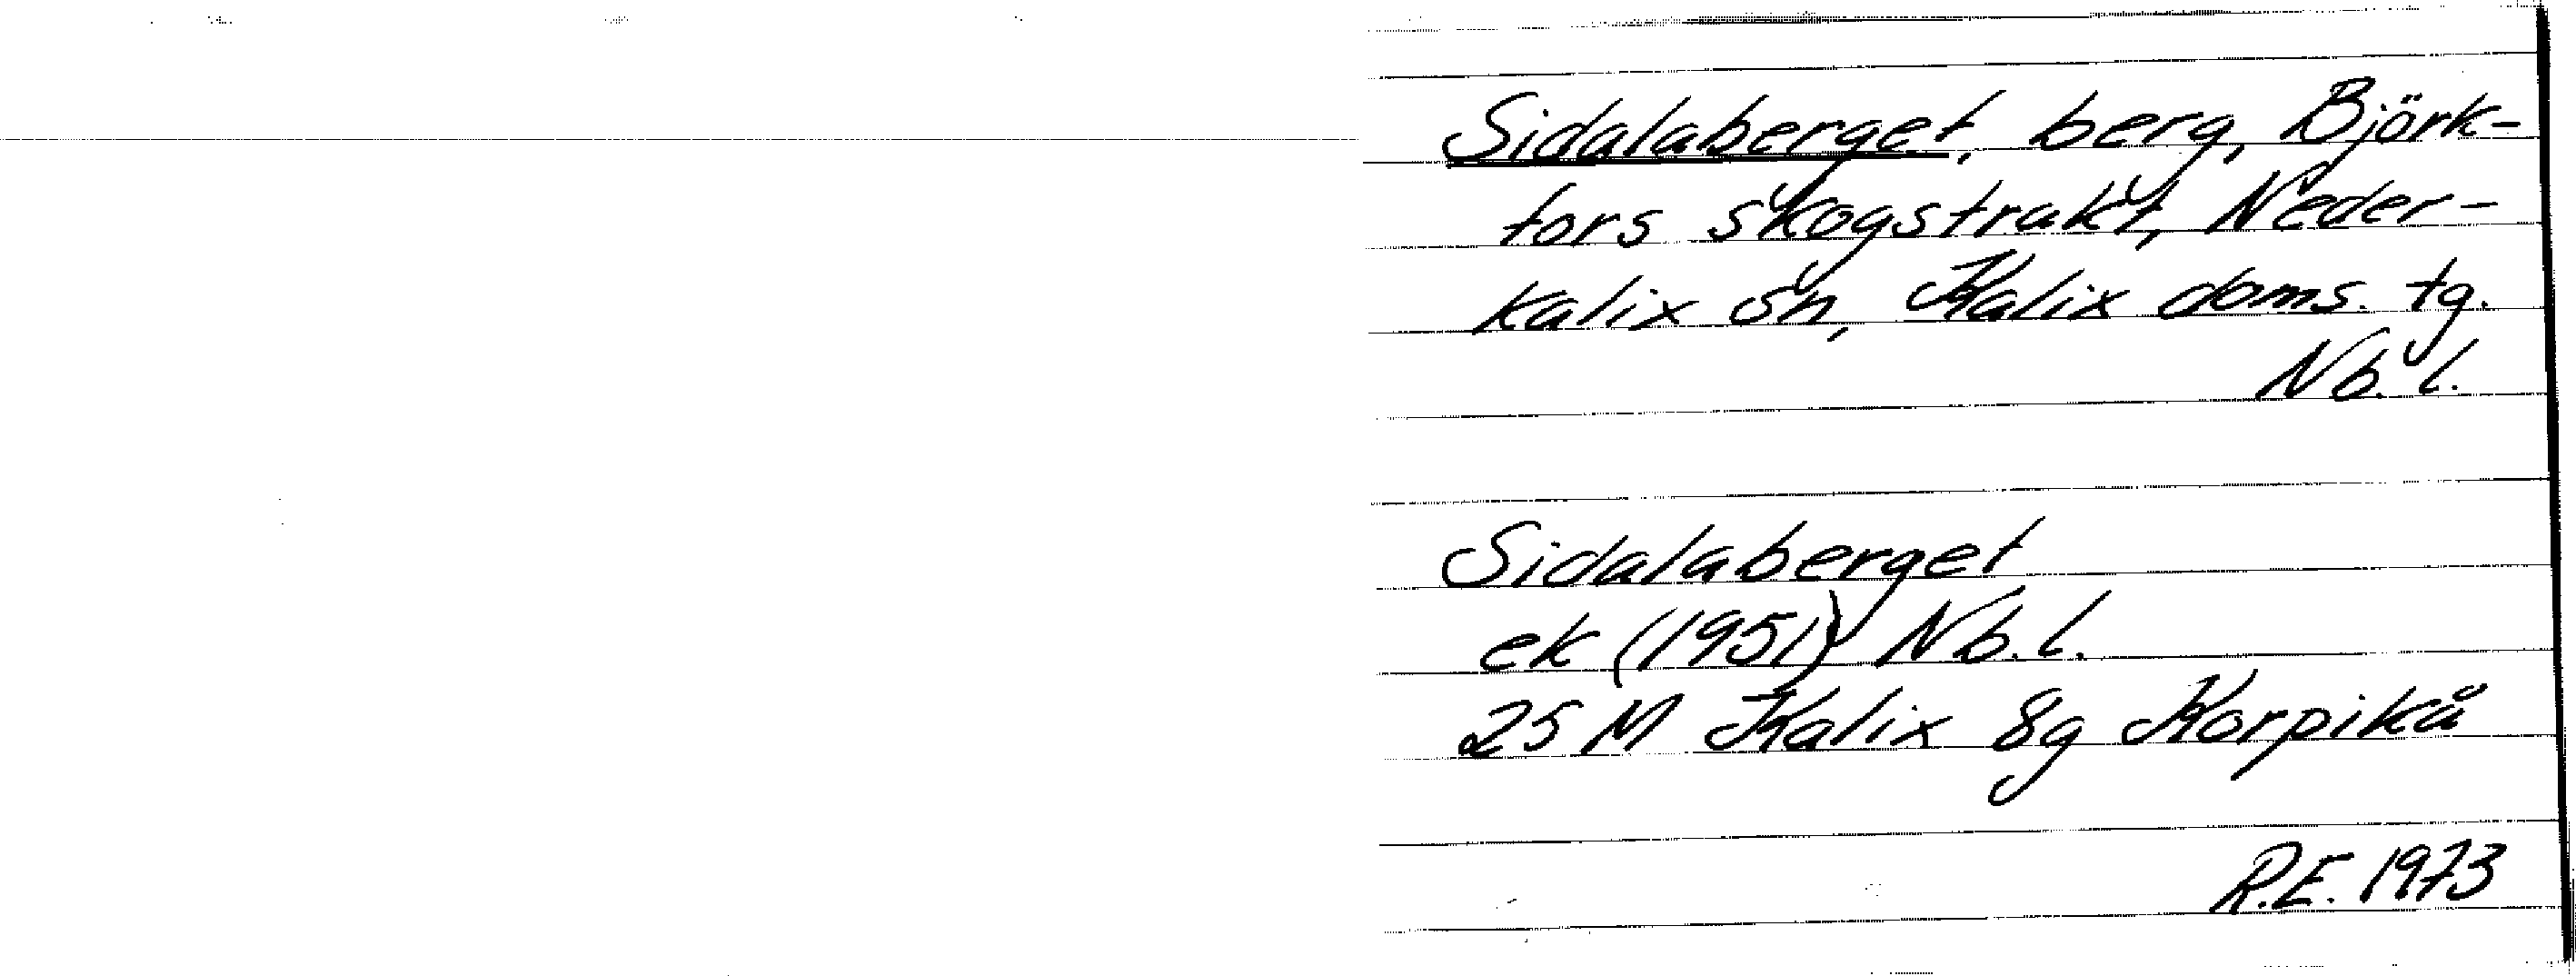 Sidalaberget, berg, Björk-
fors skogstrakt, Neder-
kalix sn, Kalix doms. tg.
Nb. l.
Sidalaberget
ek (1951) Nb. l.
25 M Kalix 8g Korpikå
R.E. 1973